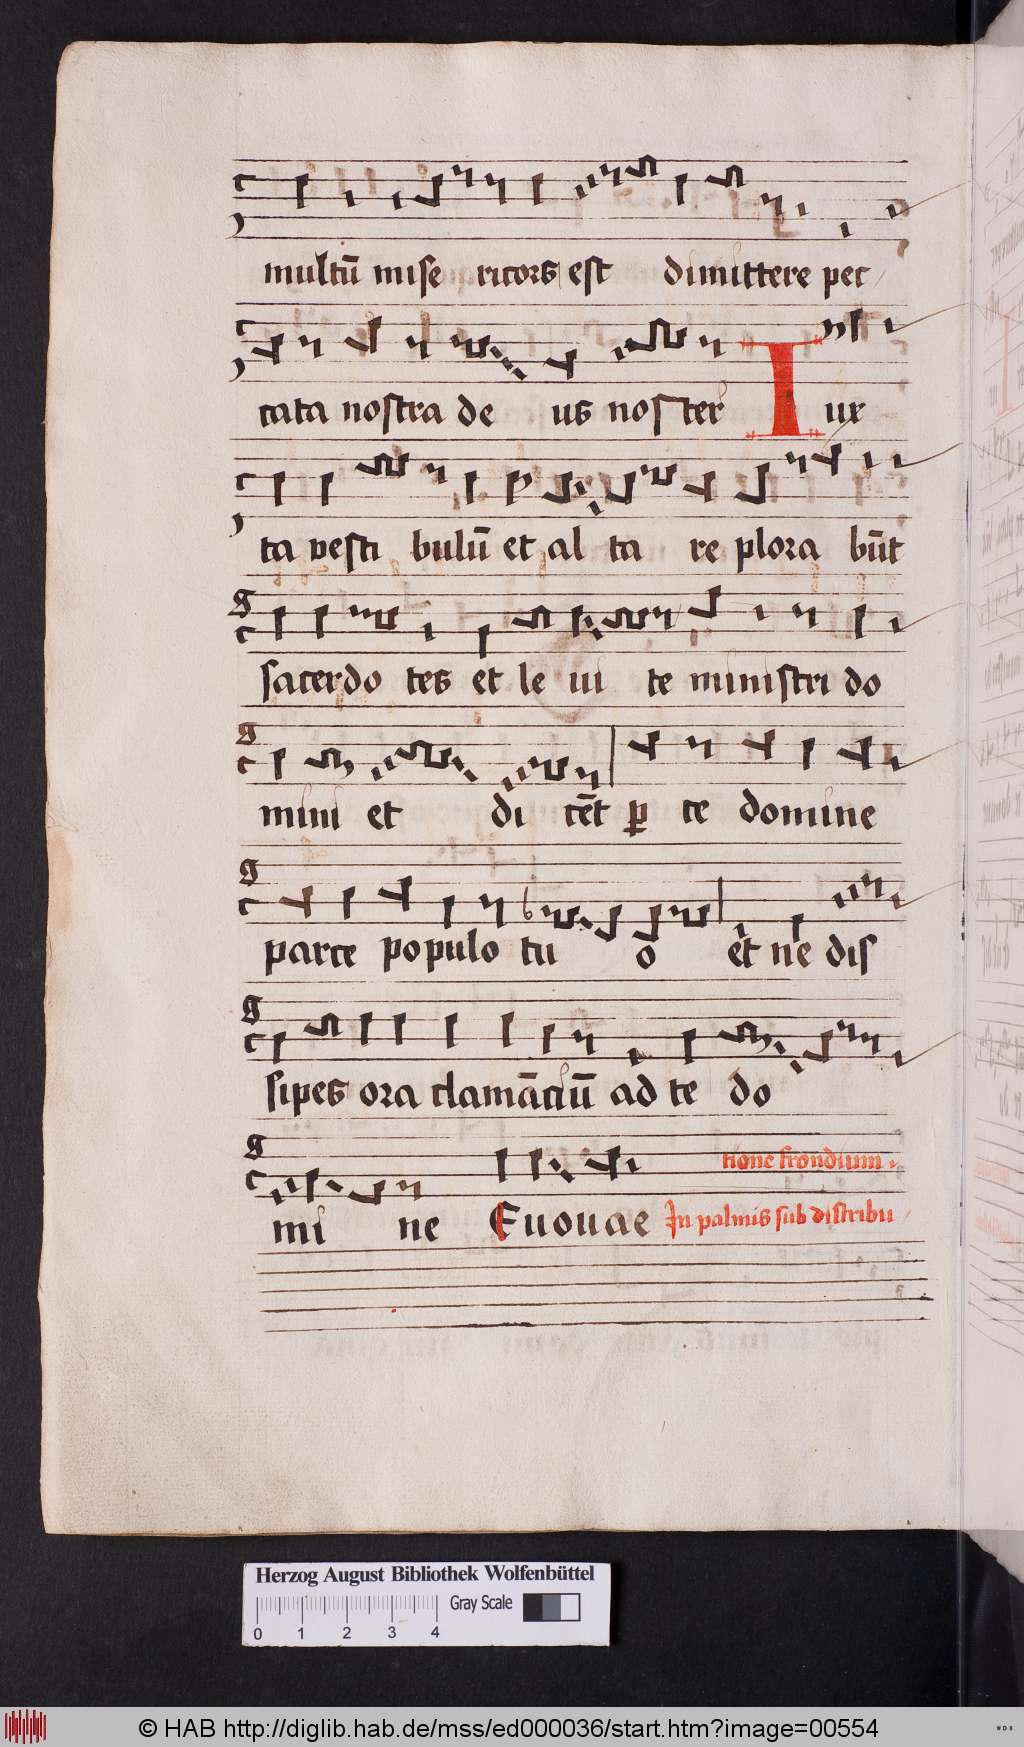 multū mise ricors est dimittere pec
cata nostra de us noster Iux
ta vesti bulū et al ta re plora būt
sacerdo tes et le ui te ministri do
mini et di cēt ꝑ te domine
parce populo tu o et ne dis
sipes ora clamāciū ad te do
tione frondium.
mi ne Euouae In palmis sub distribu
Herzog August Bibliothek Wolfenbüttel
Gray Scale
0 1 2 3 4
© HAB http://diglib.hab.de/mss/ed000036/start.htm?image=00554